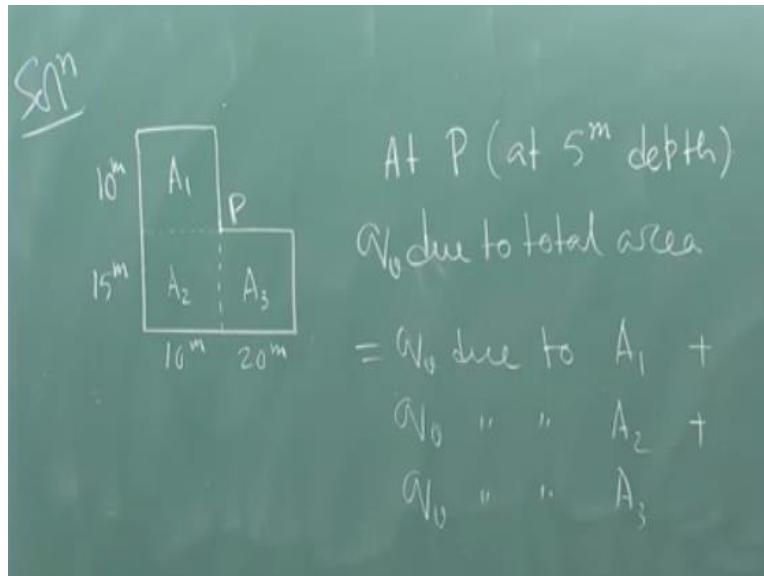 Solⁿ
10ᵐ A₁
P
15ᵐ A₂ A₃
10ᵐ 20ᵐ
At P (at 5ᵐ depth)
σᵥ due to total area
= σᵥ due to A₁ +
σᵥ " " A₂ +
σᵥ " " A₃